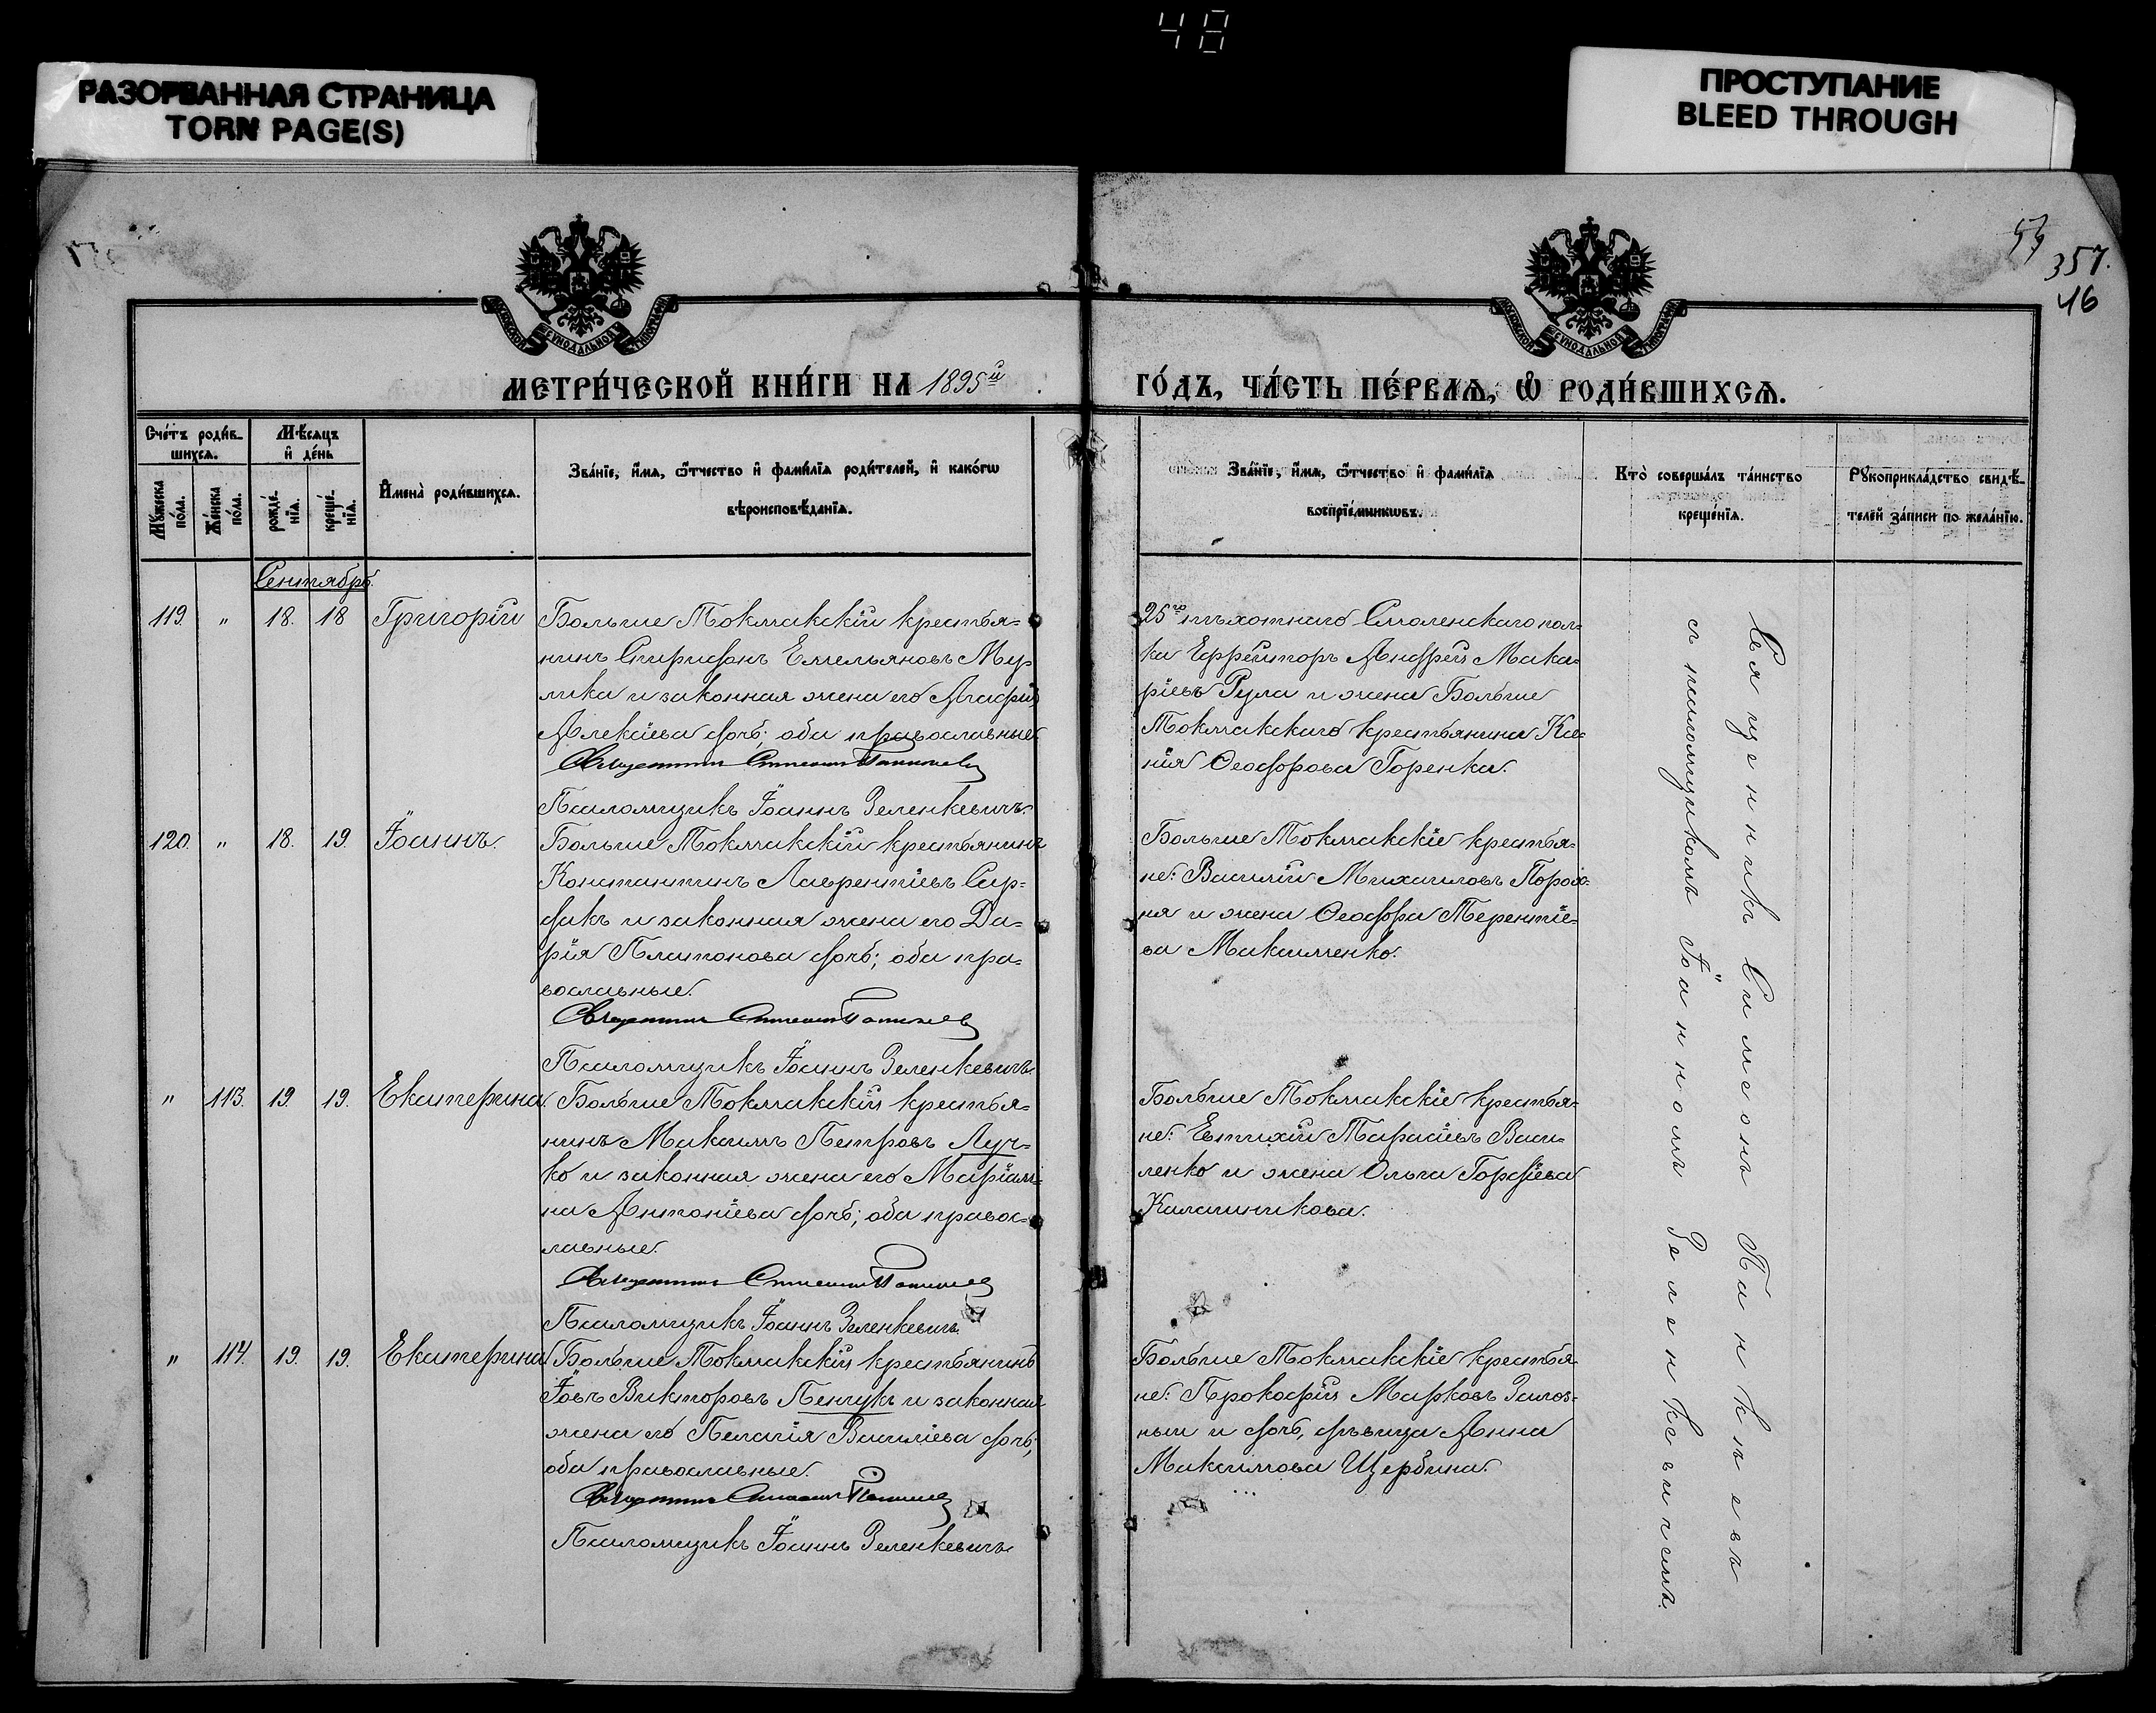 48
РАЗОРВАННАЯ СТРАНИЦА
TORN PAGE(S)
ПРОСТУПАНИЕ
BLEED THROUGH
357.
46
МОСКОВСКОЙ СѴНОДАЛЬНОЙ ТИПОГРАФІИ
МОСКОВСКОЙ СѴНОДАЛЬНОЙ ТИПОГРАФІИ
МЕТРИ́ЧЕСКОЙ КНИ́ГИ НА 1895й
ГО́ДЪ, ЧА́СТЬ ПЕ́РВАѦ, Ѡ҆ РОДИ́ВШИХСѦ.
Сче́тъ роди́в-
шихсѧ.
Мꙋ́жеска по́ла.
Же́нска по́ла.
Мѣ́сѧцъ
и҆ де́нь
рожде́-
нїѧ.
креще́-
нїѧ.
И҆мена̀ роди́вшихсѧ.
Зва́нїе, и҆́мѧ, ѻ҆́тчество и҆ фами́лїѧ роди́телей, и҆ како́гѡ
вѣроисповѣ́данїѧ.
Зва́нїе, и҆́мѧ, ѻ҆́тчество и҆ фами́лїѧ
воспрїе́мникѡвъ.
Кто̀ соверша́лъ та́инство
креще́нїѧ.
Рꙋкоприкла́дство свидѣ́-
телей за́писи по жела́нїю.
Сентябрь.
119. " 18. 18 Григорій
Больше Токмакскій крестья-
нинъ Спиридонъ Емельяновъ Мур
лика и законная жена его Агафія
Алексіева дочь; оба православные.
Священникъ Симеонъ Панкѣевъ
Псаломщикъ Іоаннъ Зеленкевичъ.
25го пѣхотнаго Смоленскаго пол-
ка Ефрейторъ Андрей Мака-
ріевъ Рула и жена Больше
Токмакскаго крестьянина Ксе-
нія Ѳеодорова Горенка.
120. " 18. 19. Іоаннъ.
Больше Токмакскій крестьянинъ
Константинъ Лаврентіевъ Сер-
дакъ и законная жена его Да-
рія Платонова дочь; оба пра-
вославные.
Священникъ Симеонъ Панкѣевъ
Псаломщикъ Іоаннъ Зеленкевичъ.
Больше Токмакскіе крестья-
не: Василій Михаиловъ Порох-
ня и жена Ѳеодора Терентіе-
ва Максименко.
" 113. 19. 19. Екатерина.
Больше Токмакскій крестья-
нинъ Максимъ Петровъ Луч-
ко и законная жена его Маріам-
на Антоніева дочь; оба правос-
лавные.
Священникъ Симеонъ Панкѣевъ
Псаломщикъ Іоаннъ Зеленкевичъ.
Больше Токмакскіе крестья-
не: Евтихій Тарасіевъ Васи-
ленко и жена Ольга Гордіева
Калашникова.
" 114. 19. 19. Екатерина
Больше Токмакскій крестьянинъ
Іовъ Викторовъ Пенчукъ и законная
жена его Пелагія Василіева дочь;
оба православные.
Священникъ Симеонъ Панкѣевъ
Псаломщикъ Іоаннъ Зеленкевичъ
Больше Токмакскіе крестья-
не: Прокофій Марковъ Залоз-
ный и дочь, дѣвица Анна
Максимова Щербина.
Священникъ Симеонъ Панкѣевъ
съ псаломщикомъ Іоанномъ Зеленкевичемъ.